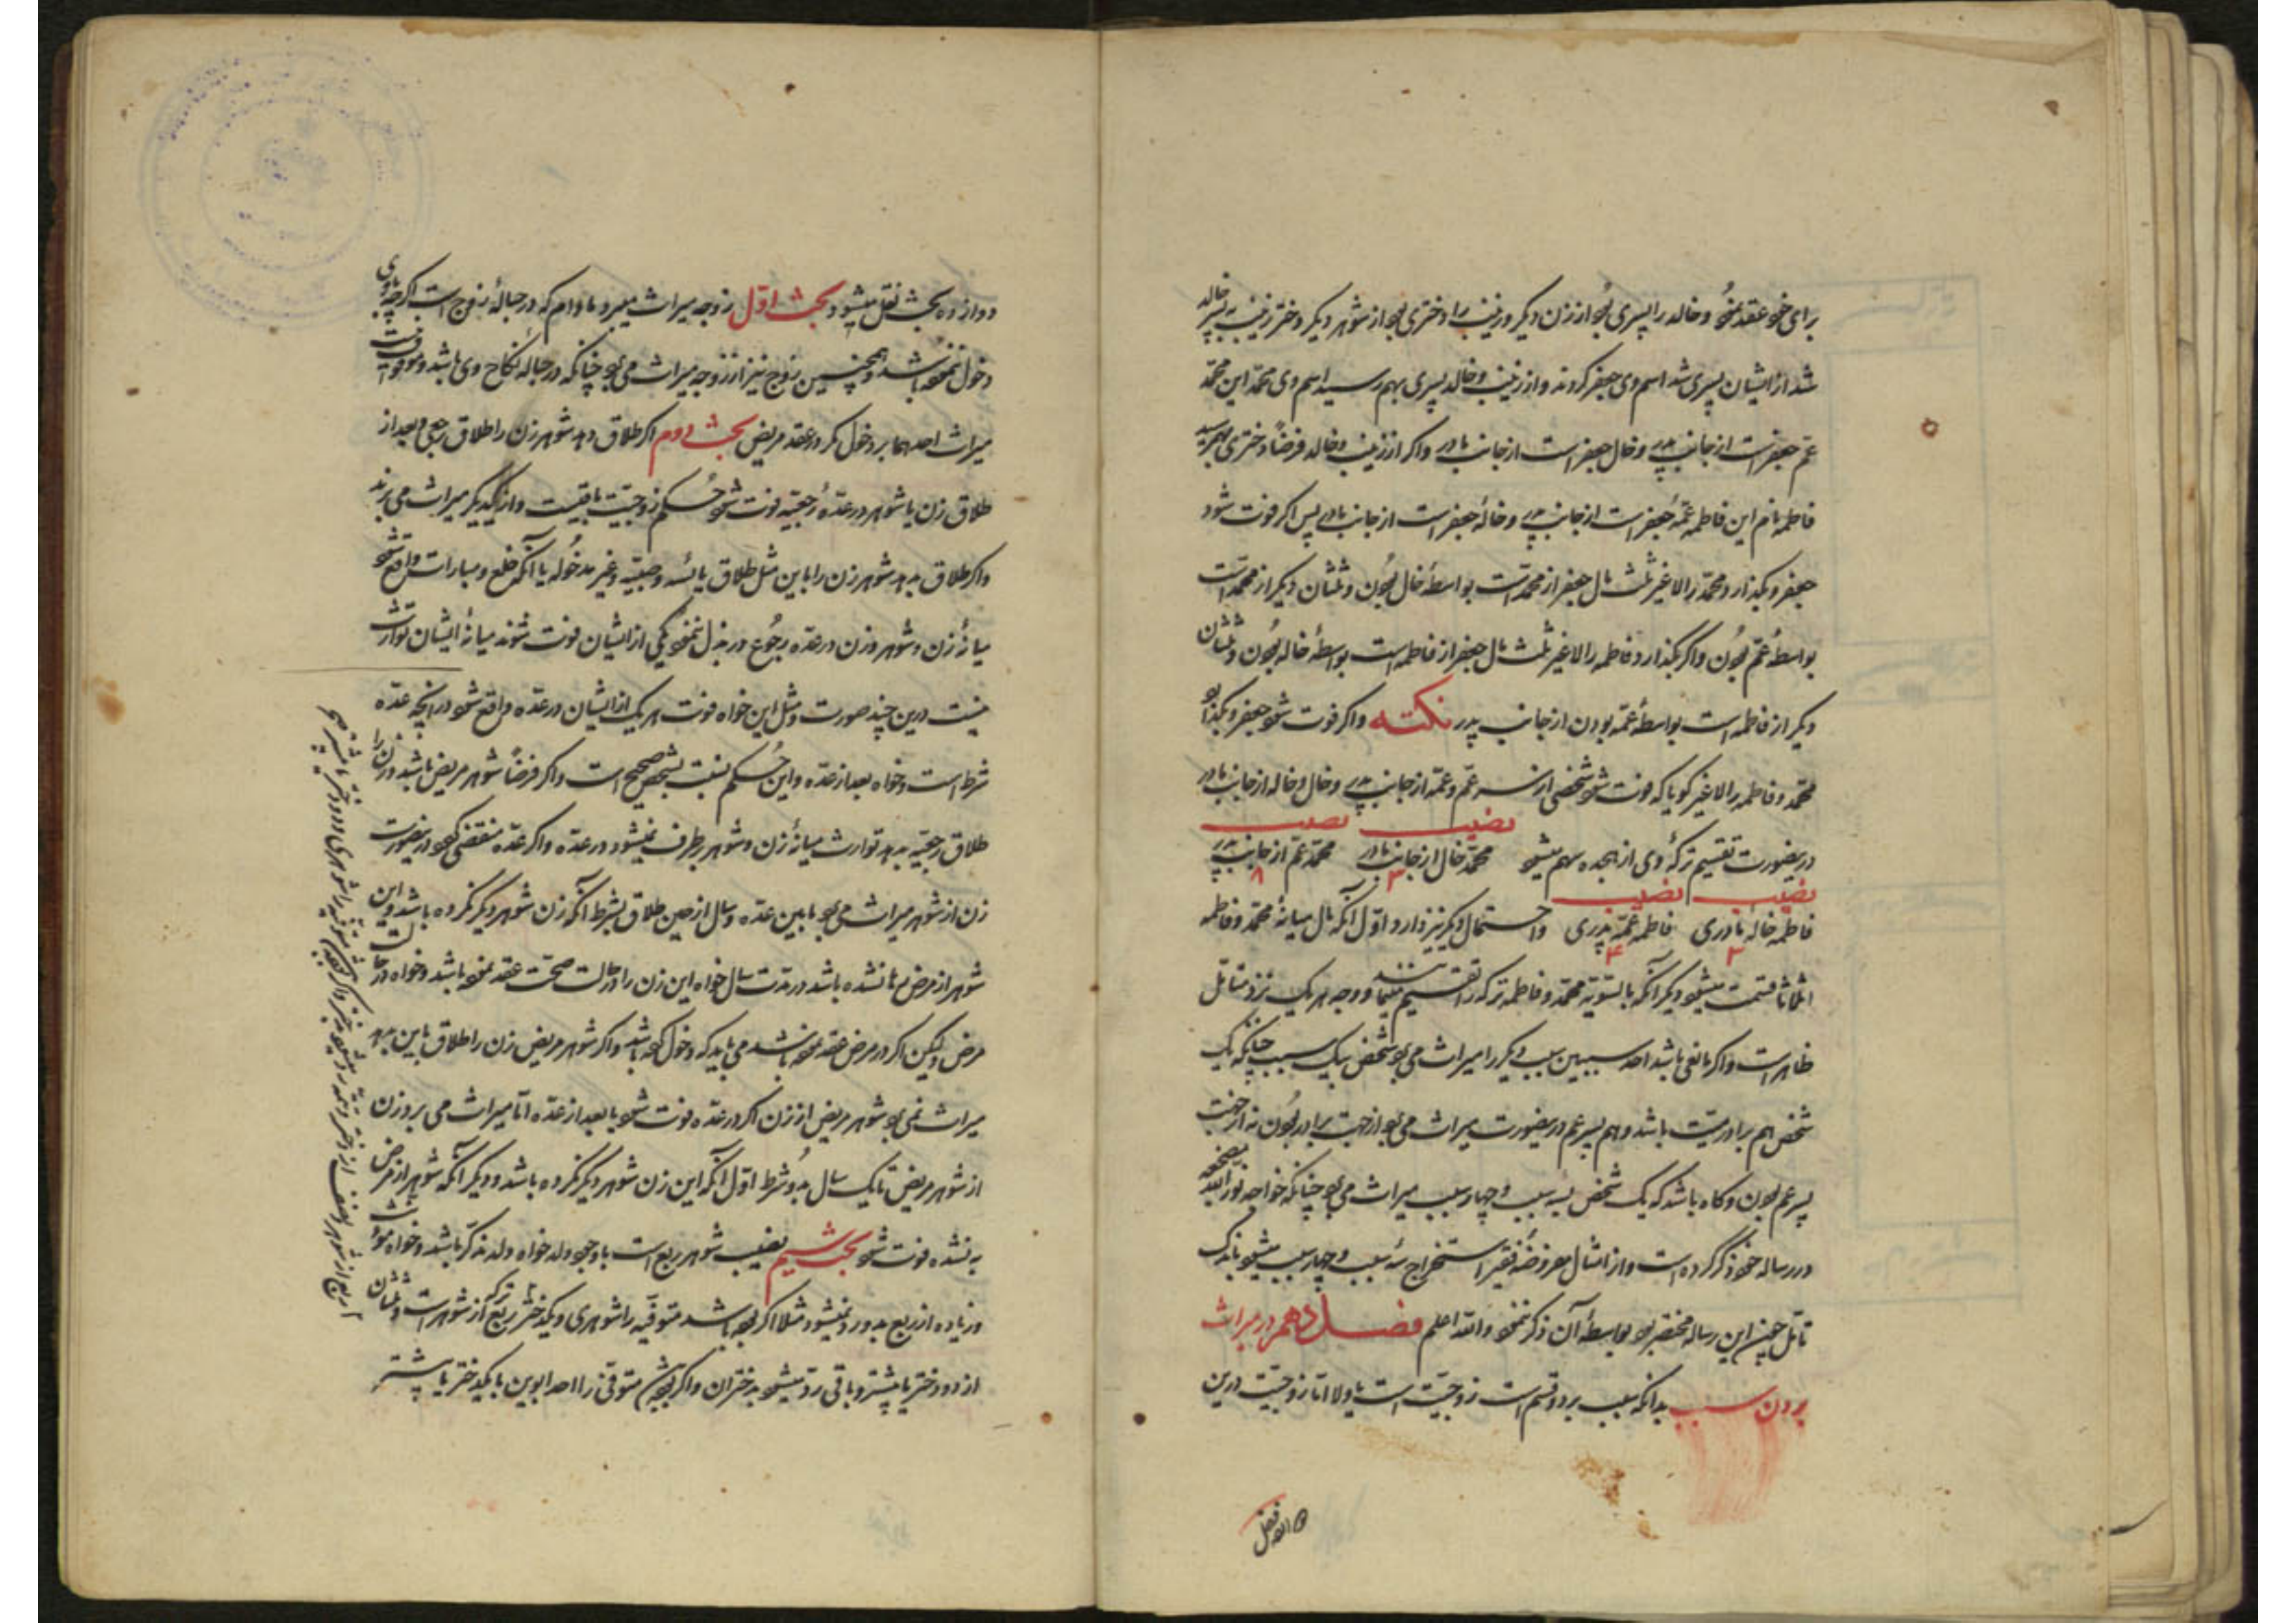 برای خود عقد نمود و خالد را پسری بود از زن دیگر و زینب را دختری بود از شوهر دیگر و دختر زینب به پسر خالد
شد از ایشان پسری شد اسم وی جعفر کردند و از زینب و خالد پسری بهم رسید اسم وی محمّد این محمّد
عم جعفر است از جانب پدر و خال جعفر است از جانب مادر و اگر از زینب و خالد فرضاً دختری بهم رسید
فاطمه نام این فاطمه عمّهٔ جعفر است از جانب پدر و خالهٔ جعفر است از جانب مادر پس اگر فوت شود
جعفر و بگذارد محمّد را لاغیر ثلث مال جعفر از محمّد است بواسطهٔ خال بودن و ثلثان دیگر از محمد است
بواسطهٔ عم بودن و اگر بگذارد فاطمه را لاغیر ثلث مال جعفر از فاطمه است بواسطهٔ خاله بودن و ثلثان
دیگر از فاطمه است بواسطهٔ عمّه بودن از جانب پدر نکته و اگر فوت شود جعفر و بگذارد
محمّد و فاطمه را لاغیر گویا که فوت شود شخصی از سر عم و عمّه از جانب پدر و خال و خاله از جانب مادر
درینصورت تقسیم ترکهٔ وی از هجده سهم میشود نصیب محمّد خال از جانب مادر ۳ نصیب محمّد عم از جانب پدر ۸
نصیب فاطمه خالهٔ مادری ۳ نصیب فاطمه عمّهٔ پدری ۴ و احتمال دیگر نیز دارد اوّل آنکه مال میانهٔ محمّد و فاطمه
اثلاثا قسمت میشود دیگر آنکه بالسّویّه محمّد و فاطمه ترکه را تقسیم مینمایند و وجه هر یک نزد متأمّل
ظاهر است و اگر مانعی باشد احد سببین سبب دیگر را میراث می برد شخص بیک سبب چنانکه یک
شخص هم برادر میّت باشد و هم پسر عم درینصورت میراث می برد از جهت برادر بودن نه از جهت
پسر عم بودن و گاه باشد که یک شخص بسه سبب و چهار سبب میراث می برد چنانکه خواجه نور الله مضجعه
در رساله خود ذکر کرده است و از امثال معروضهٔ فقیر استخراج سه سبب و چهار سبب میشود باندک
تامّل چون این رساله مختصر بود بواسطهٔ آن ذکر ننمود والله اعلم فصل دهم در میراث
بردن سبب بدانکه سبب بر دو قسم است زوجیّت است یا ولا امّا زوجیّت درین
دوازده بحث نقل میشود بحث اوّل زوجه میراث میبرد مادام که در حبالهٔ زوج است اگرچه با وی
دخول ننموده باشد و همچنین زوج نیز از زوجه میراث می برد چنانکه در حبالهٔ نکاح وی باشد و موقوف نیست
میراث احدهما بر دخول مگر در عقد مریض بحث دوم اگر طلاق دهد شوهر زن را طلاق رجعی و بعد از
طلاق زن یا شوهر در عدّهٔ رجعیّه فوت شود حکم زوجیّت باقیست و از یکدیگر میراث می برند
و اگر طلاق بدهد شوهر زن را باین مثل طلاق یائسه و صبیّه و غیر مدخوله یا آنکه خلع و مبارات واقع شود
میانهٔ زن و شوهر و زن در عدّه رجوع در بذل ننمود یکی از ایشان فوت شوند میانهٔ ایشان توارث
نیست درین چند صورت و مثل این خواه فوت هر یک از ایشان در عدّه واقع شود در آنچه عدّه
شرط است و خواه بعد از عدّه و این حکم نسبت بشخص صحیح است و اگر فرضاً شوهر مریض باشد و زن را
طلاق رجعیّه بدهد توارث میانهٔ زن و شوهر برطرف نمیشود در عدّه و اگر عدّه منقضی گردد درینصورت
زن از شوهر میراث می برد مابین عدّه و سال از حین طلاق بشرط آنکه زن شوهر دیگر نکرده باشد و این
شوهر از مرض به نشده باشد در مدت سال خواه این زن را در حالت صحّت عقد نموده باشد و خواه در حالت
مرض و لیکن اگر در مرض عقد نموده باشد می باید که دخول کرده باشد و اگر شوهر مریض زن را طلاق باین بدهد
میراث نمی برد شوهر مریض از زن اگر در عدّه فوت شود یا بعد از عدّه امّا میراث می برد زن
از شوهر مریض تا یک سال بدو شرط اوّل آنکه این زن شوهر دیگر نکرده باشد و دیگر آنکه شوهر از مرض
به نشده فوت شود بحث سیم نصیب شوهر ربع است با وجود ولد خواه ولد مذکّر باشد و خواه مؤنث
و زیاده از ربع بدو رد نمیشود مثلا اگر بوده باشد متوفّیه را شوهری و یکدختر ربع ترکه از شوهر است و ثلثان
از دو دختر یا بیشتر و باقی رد میشود بدختران و اگر بوده باشد متوفّی را احد ابوین با یکدختر یا بیشتر